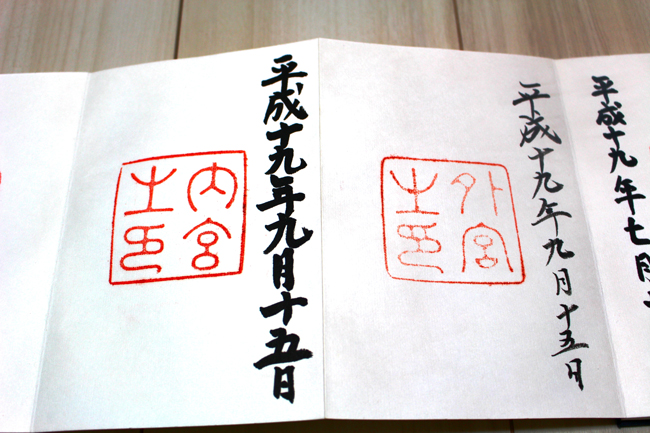 平成十九年七月
平成十九年九月十五日
外宮
之印
平成十九年九月十五日
内宮
之印